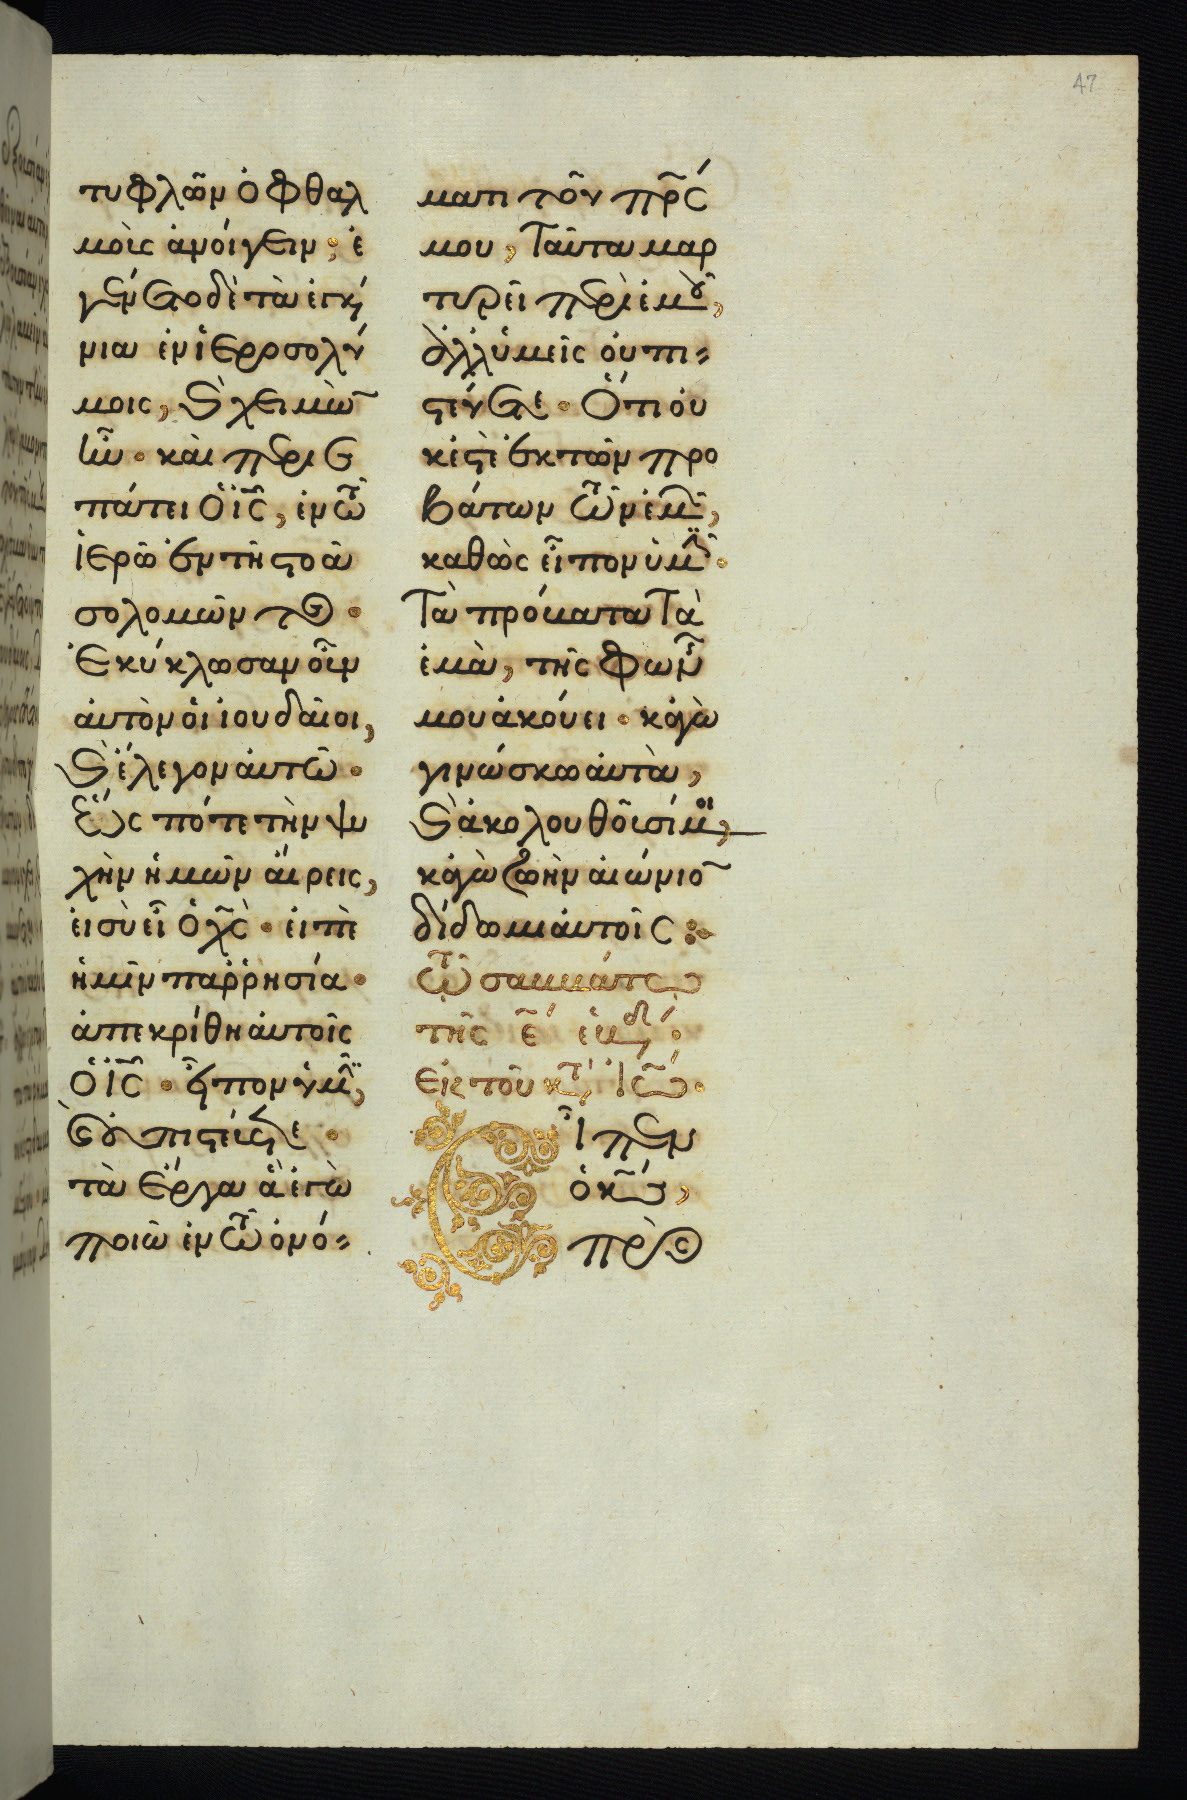 47
τυφλῶν ὀφθαλ
μοὺς ἀνοίγειν; ἐ
γένετο δὲ τὰ ἐγκαί
νια ἐν ἱεροσολύ
μοις, καὶ χειμὼν
ἦν. καὶ περιε
πάτει ὁ ἰς, ἐν τῶ
ἱερῶ ἐν τῆ στοᾶ
σολομῶντος.
Ἐκύκλωσαν οὖν
αὐτὸν οἱ ἰουδαῖοι,
καὶ ἔλεγον αὐτῶ.
ἕως πότε τὴν ψυ
χὴν ἡμῶν αἴρεις,
εἰ σὺ εἶ ὁ χς. εἰπὲ
ἡμῖν παῤῥησία.
ἀπεκρίθη αὐτοῖς
ὁ ἰς. εἶπον ὑμῖν,
καὶ οὐ πιστεύετε.
τὰ ἔργα ἃ ἐγὼ
ποιῶ ἐν τῶ ὀνό-
ματι τοῦ πρς
μου, ταῦτα μαρ
τυρεῖ περὶ ἐμοῦ,
ἀλλ' ὑμεῖς οὐ πι-
στεύετε. Ὅτι οὐ
κ ἐστὲ ἐκ τῶν προ
βάτων τῶν ἐμῶν,
καθὼς εἶπον ὑμῖν.
Τὰ πρόβατα τὰ
ἐμὰ, τῆς φωνῆς
μου ἀκούει. κἀγὼ
γινώσκω αὐτὰ,
καὶ ἀκολουθοῦσί μοι,
κἀγὼ ζωὴν αἰώνιον
δίδωμι αὐτοῖς:
Τῶ σαββάτω
τῆς ε ἑβδ.
Ἐκ τοῦ κτ Ἰω.
Εἶπεν
ὁ κς,
πρὸς